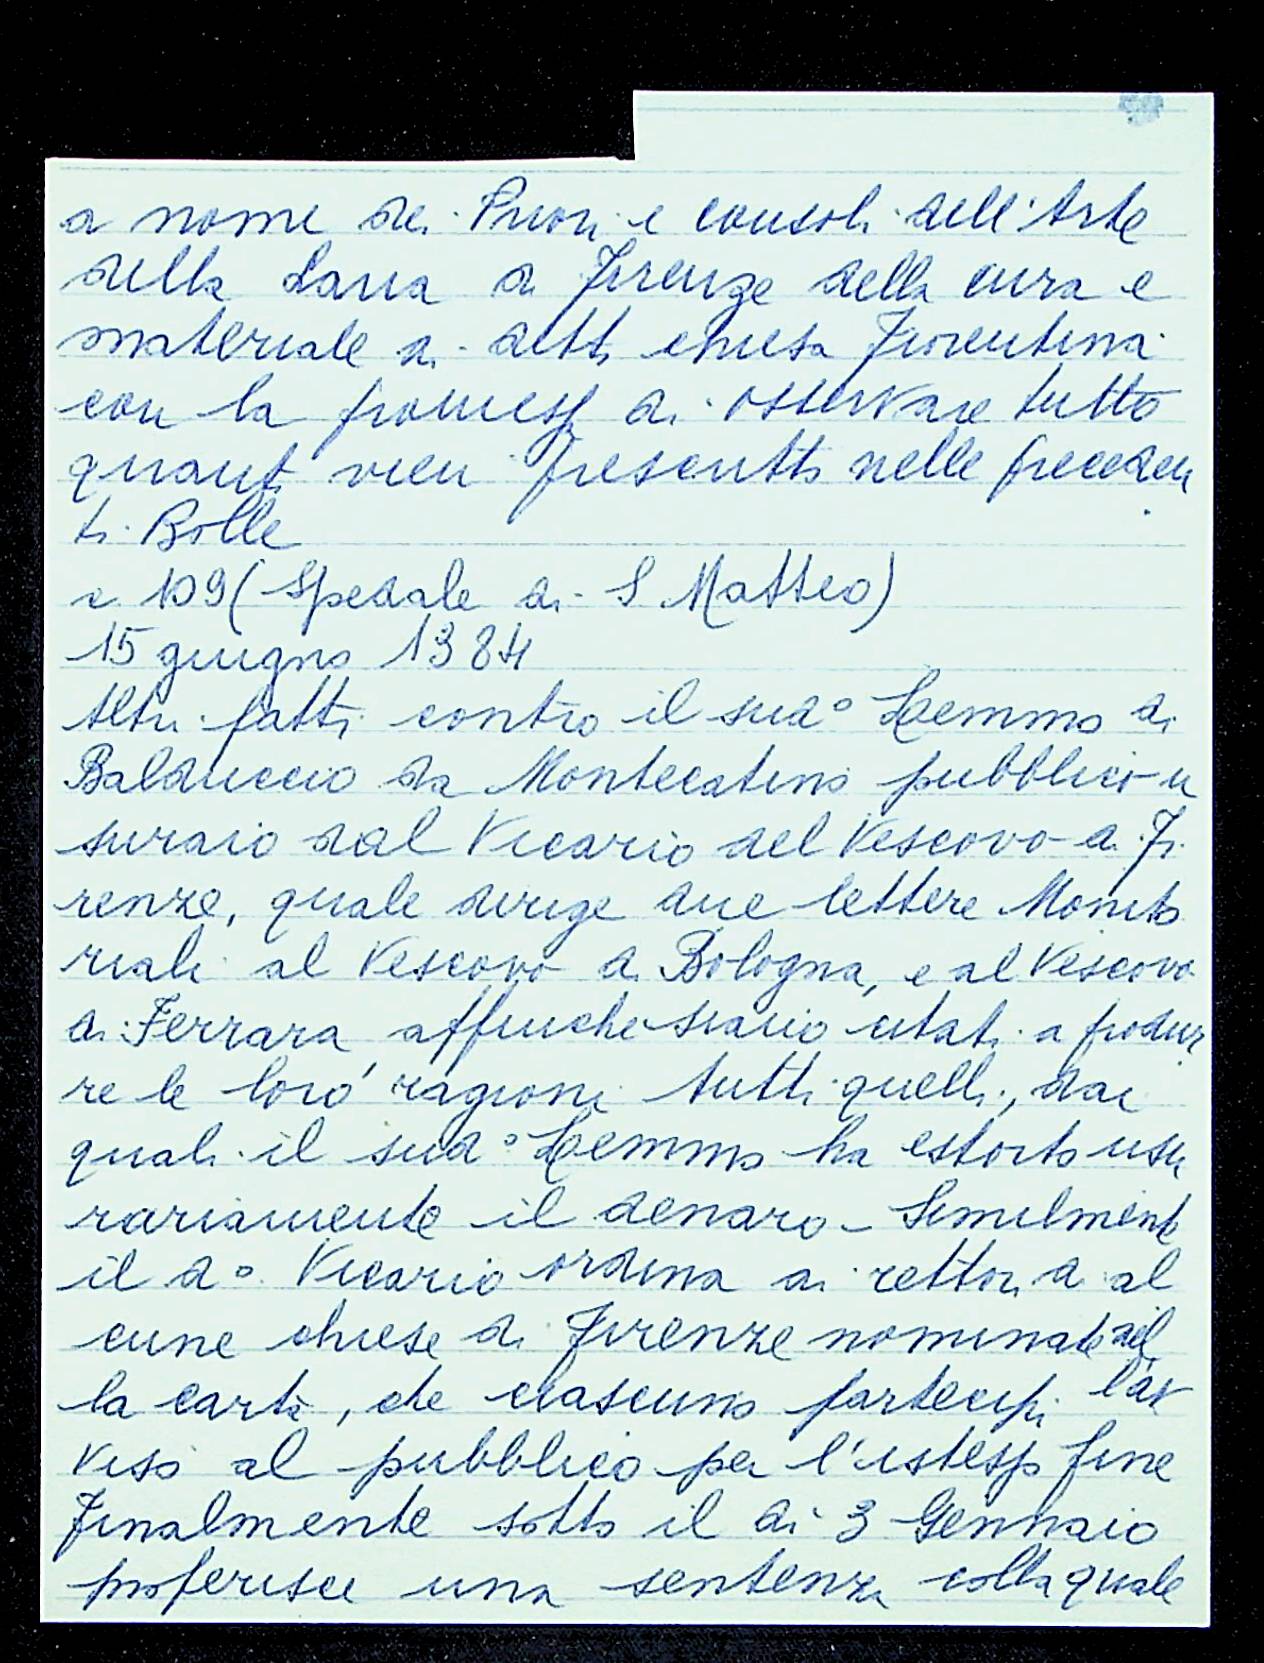 a nome dei Priori e consoli dell'Arte
della Lana di Firenze della cura e
materiale di detta chiesa Fiorentina
con la promessa di osservare tutto
quanto vien presentto nelle preceden
ti Bolle
c 109 (Spedale di S Matteo)
15 giugno 1384
Altri fatti contro il sud° Lemmo di
Balduccio da Montecatini pubblico u
suraio dal Vicario del Vescovo di Fi
renze, quale dirige due lettere Monito
riali al Vescovo di Bologna, e al Vescovo
di Ferrara affinche siano citati a produr
re le loro ragioni tutti quelli, dai
quali il sud° Lemmo ha estorto usu
rariamente il denaro - Similmente
il d° Vicario ordina ai rettori di al
cune chiese di Firenze nominate nel
la carta, che ciascuno partecipi l'av
viso al pubblico per l'istesso fine
Finalmente sotto il dì 3 Gennaio
proferisce una sentenza colla quale